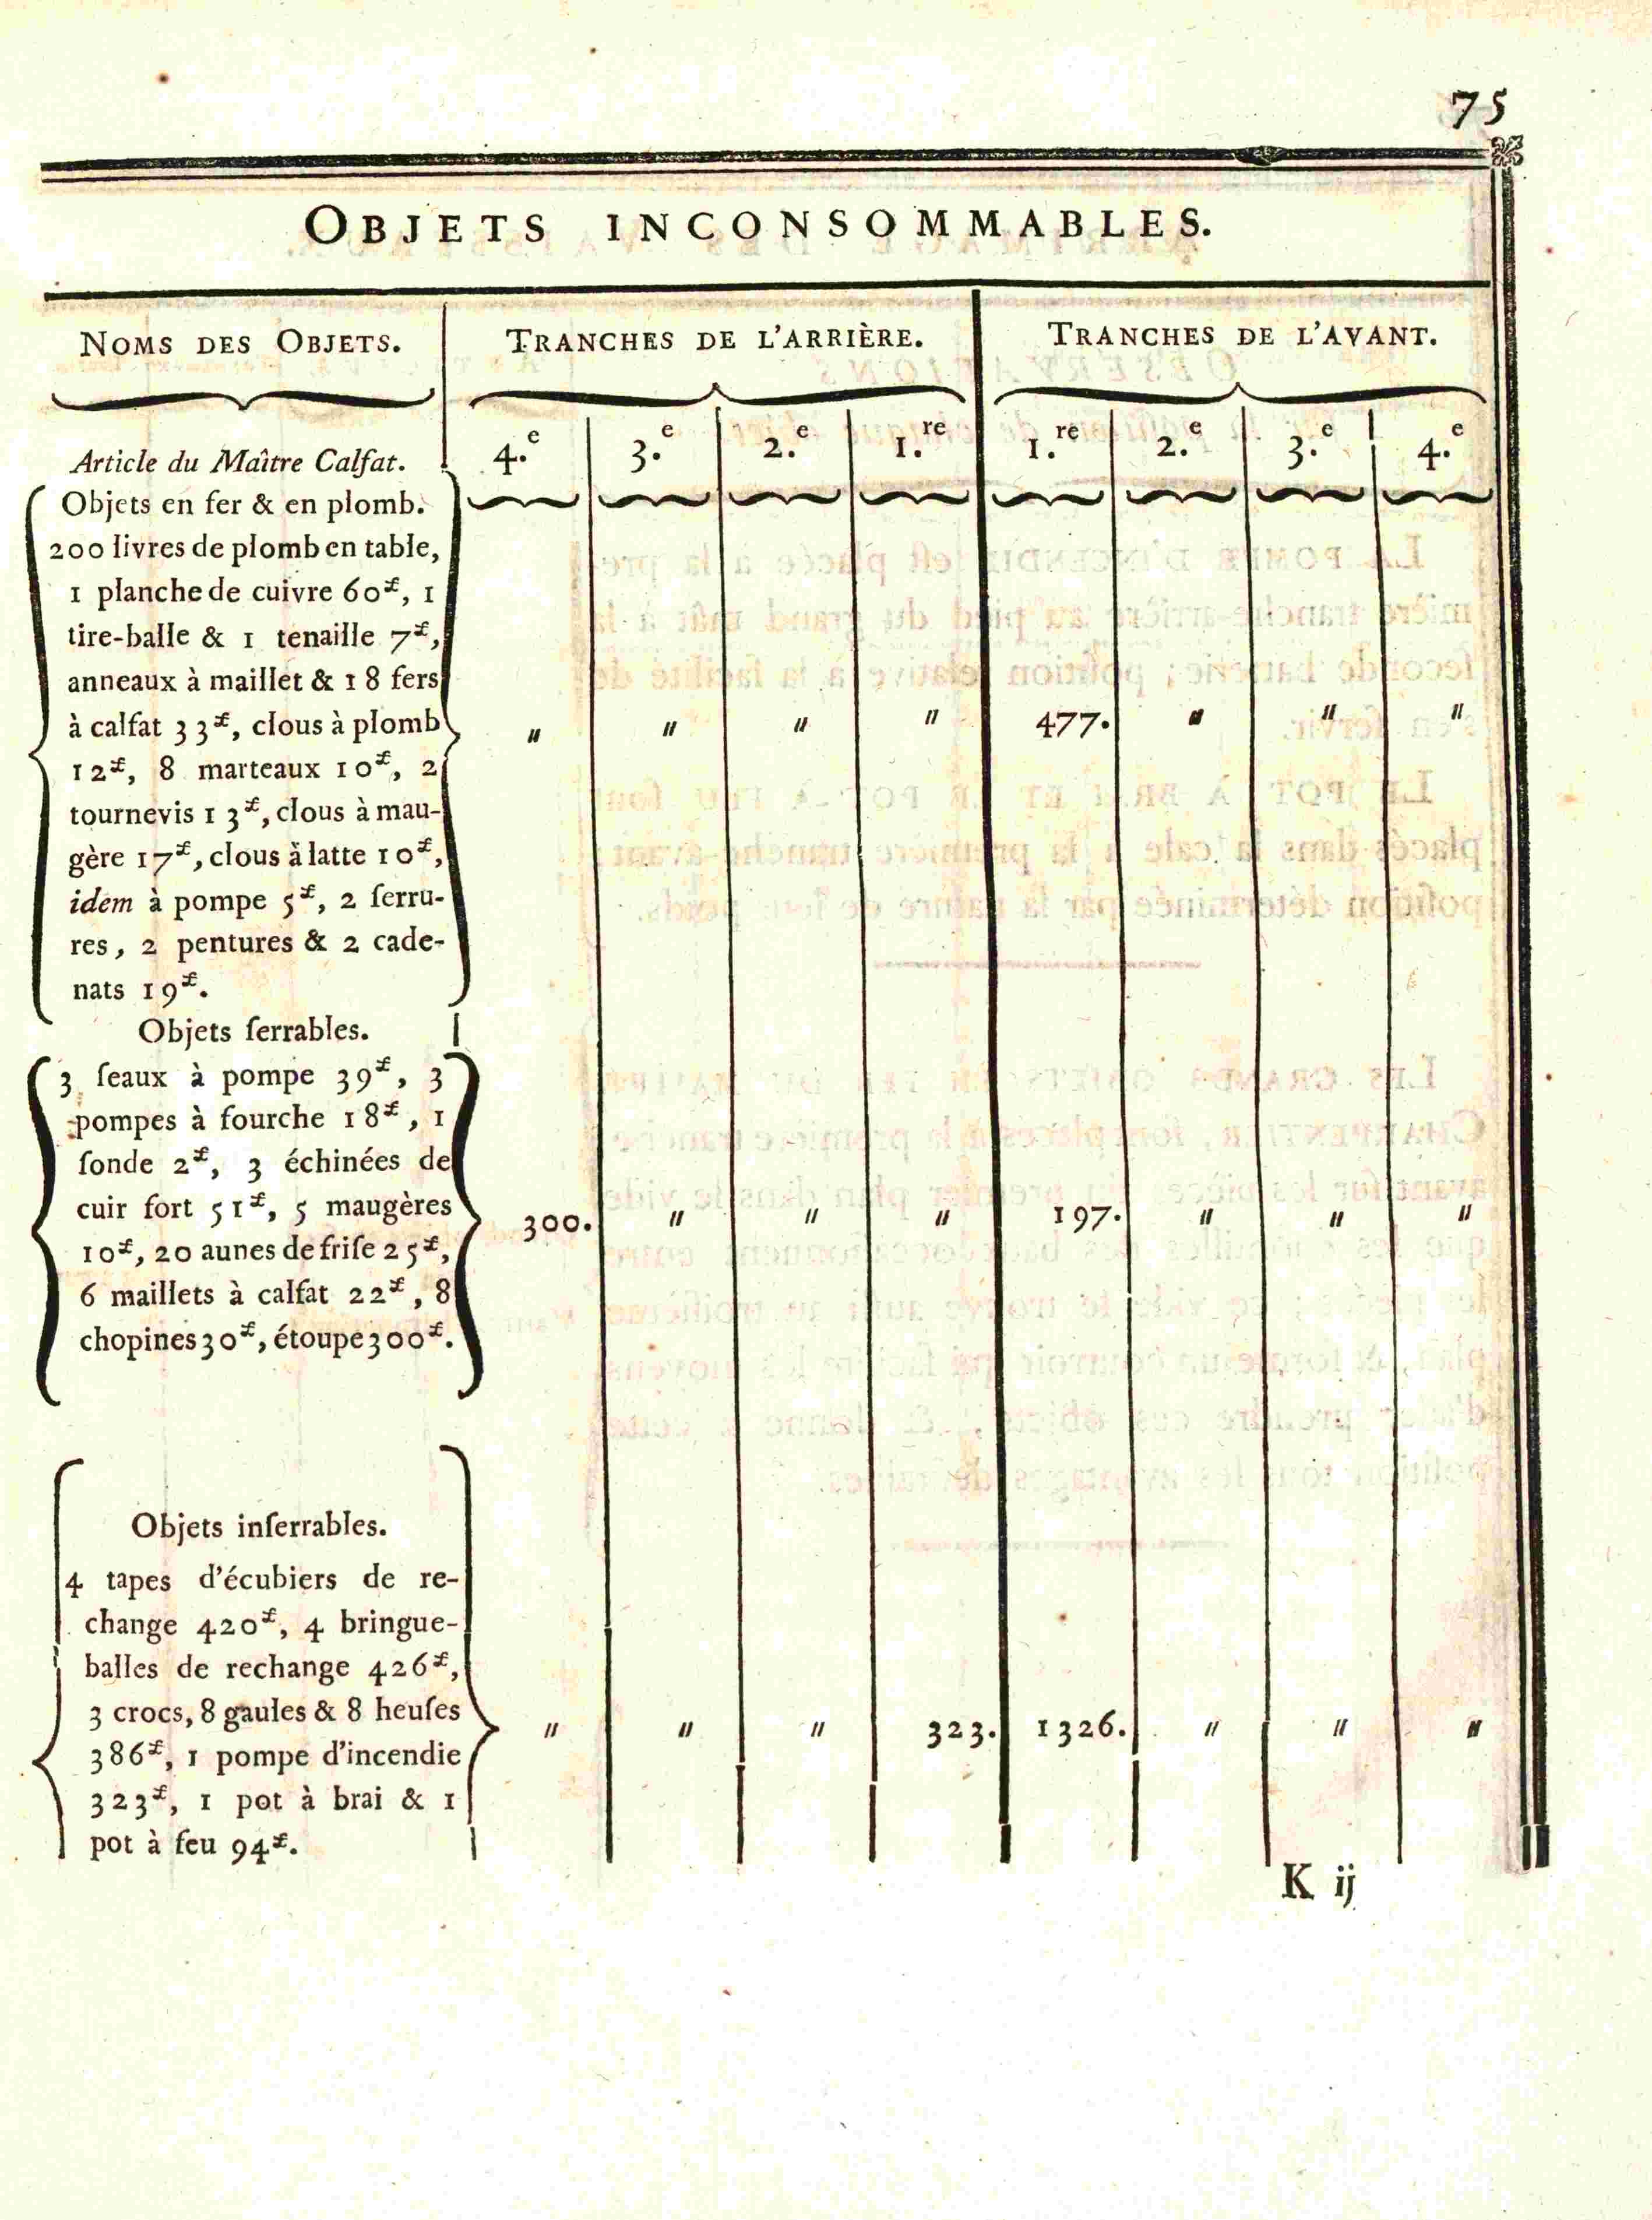 75
OBJETS INCONSOMMABLES.
NOMS DES OBJETS. TRANCHES DE L'ARRIÈRE. TRANCHES DE L'AVANT.
4.e 3.e 2.e 1.re 1.re 2.e 3.e 4.e
Article du Maître Calfat.
Objets en fer & en plomb.
200 livres de plomb en table,
1 planche de cuivre 60₶, 1
tire-balle & 1 tenaille 7₶,
anneaux à maillet & 18 fers
à calfat 33₶, clous à plomb
12₶, 8 marteaux 10₶, 2
tournevis 13₶, clous à mau-
gère 17₶, clous à latte 10₶,
idem à pompe 5₶, 2 ſerru-
res, 2 pentures & 2 cade-
nats 19₶.
" " " " 477. " " "
Objets ſerrables.
3 ſeaux à pompe 39₶, 3
pompes à fourche 18₶, 1
ſonde 2₶, 3 échinées de
cuir fort 51₶, 5 maugères
10₶, 20 aunes de friſe 25₶,
6 maillets à calfat 22₶, 8
chopines 30₶, étoupe 300₶.
300. " " " 197. " " "
Objets inſerrables.
4 tapes d'écubiers de re-
change 420₶, 4 bringue-
balles de rechange 426₶,
3 crocs, 8 gaules & 8 heuſes
386₶, 1 pompe d'incendie
323₶, 1 pot à brai & 1
pot à feu 94₶.
" " " 323. 1326. " " "
K ij